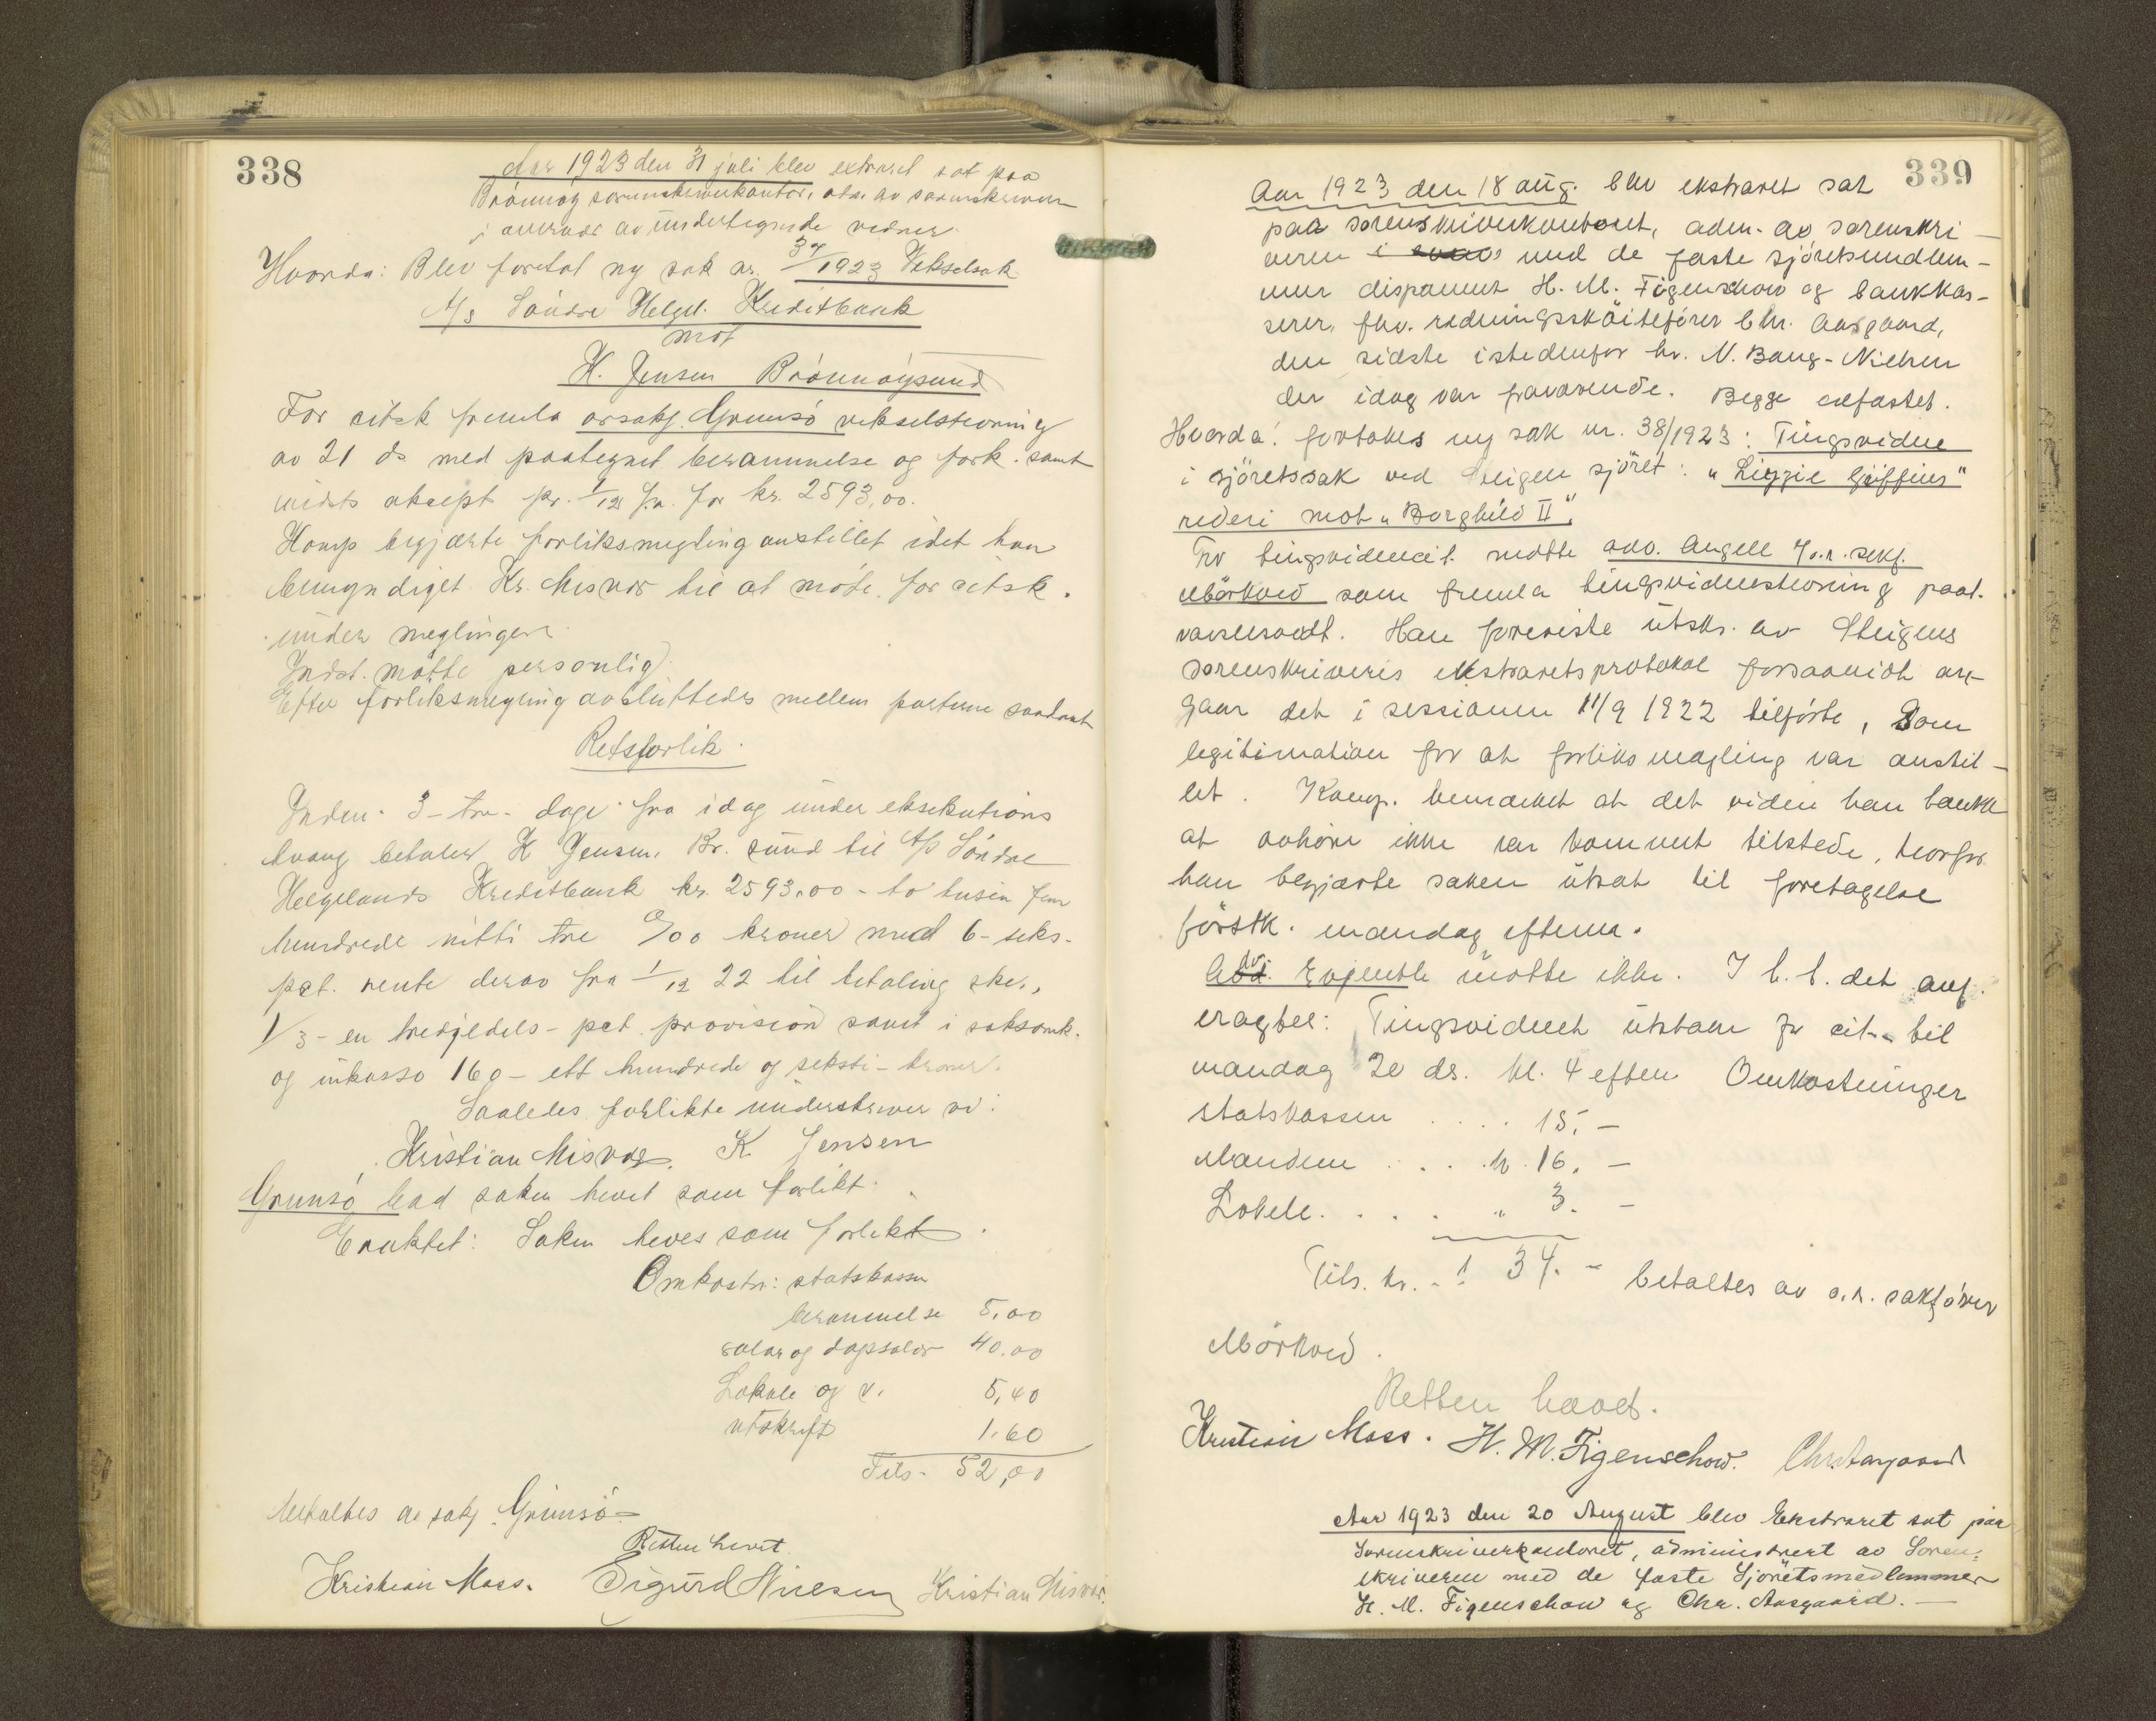 338
Aar 1923 den 31 juli blev extraret sat paa
Brönnöy sorenskriverkontor, adm. av sorenskriveren
i overvær av undertegnede vidner.
Hvorda: Blev foretat ny sak nr. 37/1923 Vekselsak
A/s Söndre Helgel. Kreditbank
mot
K. Jensen Brönnöysund
For citsk fremla orsakf. Grunsö vekselstevning
av 21 ds med paategnet berammelse og fork. samt
aksept pr. 1/12 f.a. for kr. 2593,00.
Komp begjærte forliksmegling anstillet idet han
bemyndiget Kr. Misvær til at möte for citsk.
under meglingen.
Indst. mötte personlig.
Efter forliksmegling avsluttedes mellem parterne saadant
Retsforlik.
Inden 3 - tre - dage fra idag under eksekutions
tvang betaler K Jensen, Br. sund til A/s Söndre
Helgelands Kreditbank kr. 2593,00 - to tusin fem
hundrede nitti tre 0/00 kroner med 6 - seks -
pct. rente derav fra 1/12 22 til betaling sker,
1/3 - en tredjedels - pct provision samt i saksomk.
og inkasso 160 - ett hundrede og seksti - kroner.
Saaledes forlikte underskriver vi:
Kristian Misvær. K Jensen
Grunsö bad saken hevet som forlikt.
Eraktet: Saken heves som forlikt.
Omkostn: statskassen
berammelse 5,00
salær og dagsalær 40.00
Lokale og v. 5,40
utskrift 1.60
Tils. 52,00
betaltes av sakf. Grunsö
Retten hevet.
Kristian Moss. Sigurd Nilesen Kristian Misvær.
339
Aar 1923 den 18 aug. blev ekstraret sat
paa sorenskriverkontoret, adm. av sorenskri-
veren i med de faste sjöretsmedlem-
mer disponent H. M. Figenschow og bankkas-
serer, fhv. redningssköitefører Chr. Aasgaard,
den sidste istedenfor hr. N. Bang-Nielsen
der idag var fraværende. Begge edfæstet.
Hvorda: foretokes ny sak nr. 38/1923: Tingsvidne
i sjöretssak ved Steigen sjöret: "Lizzie Griffins"
rederi mot "Borghild II".
For tingsvidnecit. mötte adv. Angell v/o.r. sakf.
Mörkved som fremla tingsvidnestevning paat.
varselsvedt. Han foreviste utskr. av Steigens
sorenskriveris ekstraretsprotokol forsaavidt an-
gaar det i sessionen 11/9 1922 tilförte, som
legitimation for at forliksmægling var anstil-
let. Komp. bemærket at det vidne han tænkte
at avhöre ikke var kommet tilstede, hvorfor
han begjærte saken utsat til foretagelse
förstk. mandag efterm.
Adv. Evjenth mötte ikke. I h. t. det anf.
eragtet: Tingsvidnet utstaar for cit. til
mandag 20 ds. kl. 4 efterm. Omkostninger
statskassen . . . . 15. -
Mændene . . . kr. 16. -
Lokale. . . . . " 3. -
Tils. kr. . . 34. - betaltes av o.r. sakförer
Mörkved.
Retten hævet.
Kristian Moss. H. M. Figenschow. Chr. Aasgaard
Aar 1923 den 20 August blev Ekstraret sat paa
Sorenskriverkontoret, administrert av Soren-
skriveren med de faste Sjöretsmedlemmer
H. M. Figenschow og Chr. Aasgaard. -